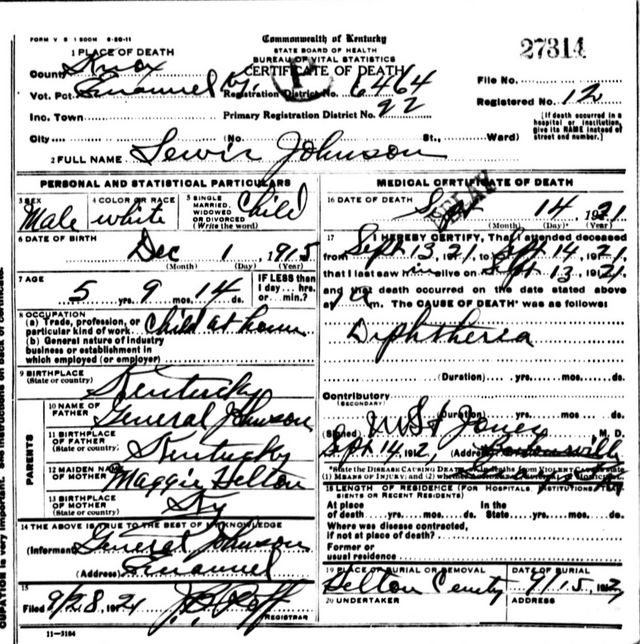 FORM V S 1 500M 6-20-11
Commonwealth of Kentucky
STATE BOARD OF HEALTH
BUREAU OF VITAL STATISTICS
CERTIFICATE OF DEATH
27314
1 PLACE OF DEATH
County Knox
Vot. Pct. Emanuel Ky Registration District No. 6464
File No.
Inc. Town Primary Registration District No. 22
Registered No. 12
City (No. St., Ward)
[If death occurred in a hospital or institution, give its NAME instead of street and number.]
2 FULL NAME Lewis Johnson
PERSONAL AND STATISTICAL PARTICULARS
3 SEX Male
4 COLOR OR RACE white
5 SINGLE MARRIED, WIDOWED OR DIVORCED (Write the word) Child
6 DATE OF BIRTH Dec 1, 1915
(Month) (Day) (Year)
7 AGE 5 yrs. 9 mos. 14 ds.
IF LESS than 1 day... hrs. or... min.?
8 OCCUPATION
(a) Trade, profession, or particular kind of work Child at home
(b) General nature of industry business or establishment in which employed (or employer)
9 BIRTHPLACE (State or country) Kentucky
PARENTS
10 NAME OF FATHER General Johnson
11 BIRTHPLACE OF FATHER (State or country) Kentucky
12 MAIDEN NAME OF MOTHER Maggie Helton
13 BIRTHPLACE OF MOTHER (State or country) Ky
14 THE ABOVE IS TRUE TO THE BEST OF KNOWLEDGE
(Informant) General Johnson
(Address) Emanuel
15
Filed 9/28, 1921
REGISTRAR
11-3184
MEDICAL CERTIFICATE OF DEATH
DELAY
16 DATE OF DEATH Sept 14, 1921
(Month) (Day) (Year)
17 I HEREBY CERTIFY, That I attended deceased
from Sept 13, 21, to Sept 14, 1921,
that I last saw him alive on Sept 13, 1921,
and that death occurred on the date stated above
at m. The CAUSE OF DEATH* was as follows:
Diphtheria
(Duration) yrs. mos. ds.
Contributory (SECONDARY)
(Duration) yrs. mos. ds.
(Signed) Jones M. D.
Sept. 14, 1912, (Address) Barbourville
*State the DISEASE CAUSING DEATH
(1) MEANS OF INJURY; and (2) whether
18 LENGTH OF RESIDENCE (FOR HOSPITALS, INSTITUTIONS, TRANSIENTS OR RECENT RESIDENTS)
At place of death yrs. mos. ds. In the State yrs. mos. ds.
Where was disease contracted, if not at place of death?
Former or usual residence
19 PLACE OF BURIAL OR REMOVAL Helton Cemty
DATE OF BURIAL 9/15, 192
20 UNDERTAKER ADDRESS